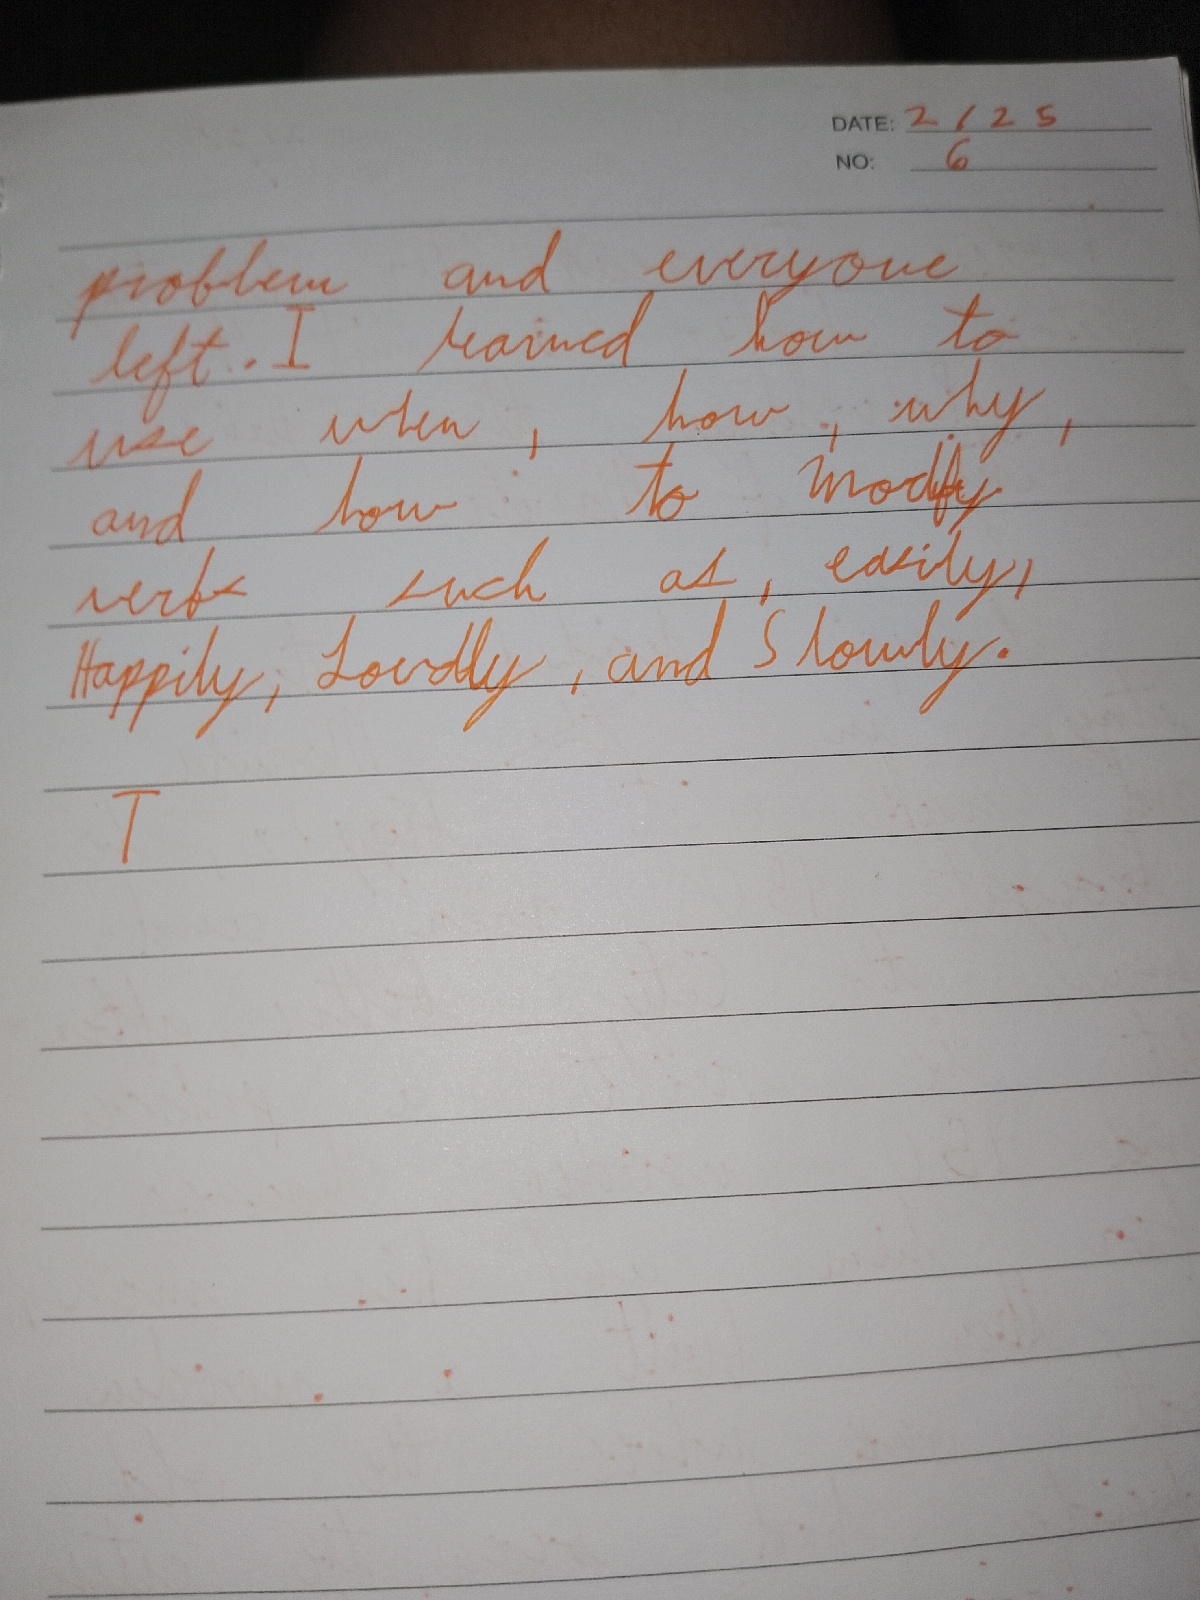 DATE: 2/25
NO: 6
problem and everyone
left. I learned how to
use when, how, why,
and how to modify
verbs such as, easily,
Happily, Loudly, and Slowly.
T